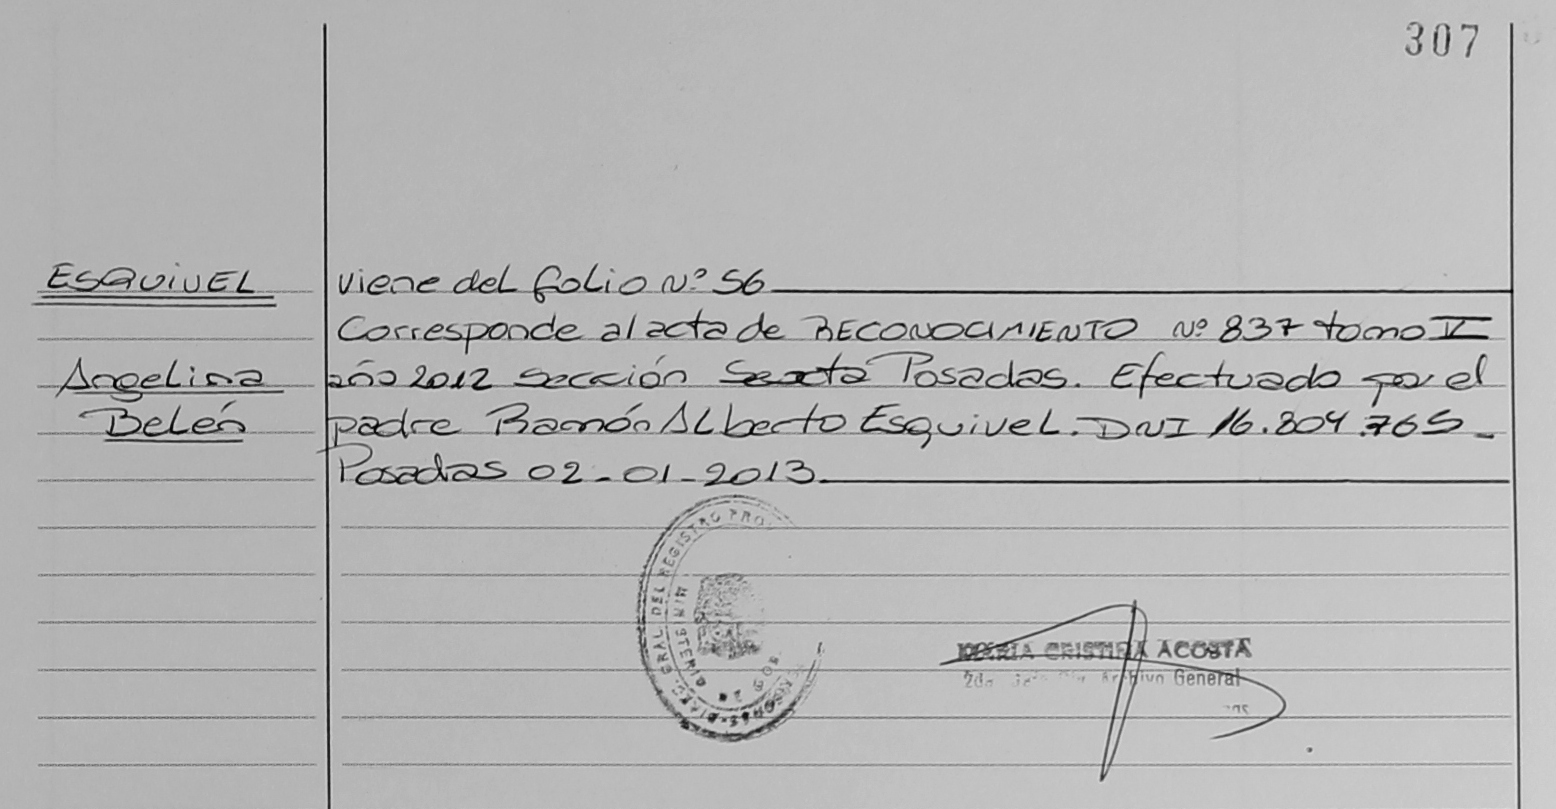 307
ESQUIVEL
Viene del folio Nº 56
Corresponde al acta de RECONOCIMIENTO Nº 837 tomo V
Angelina
año 2012 Sección Sexta Posadas. Efectuado por el
Belén
padre Ramón Alberto Esquivel. DNI 16.804.765
Posadas 02-01-2013.
GRAL. DEL REGISTRO
MINISTERIO
MARIA CRISTINA ACOSTA
Archivo General